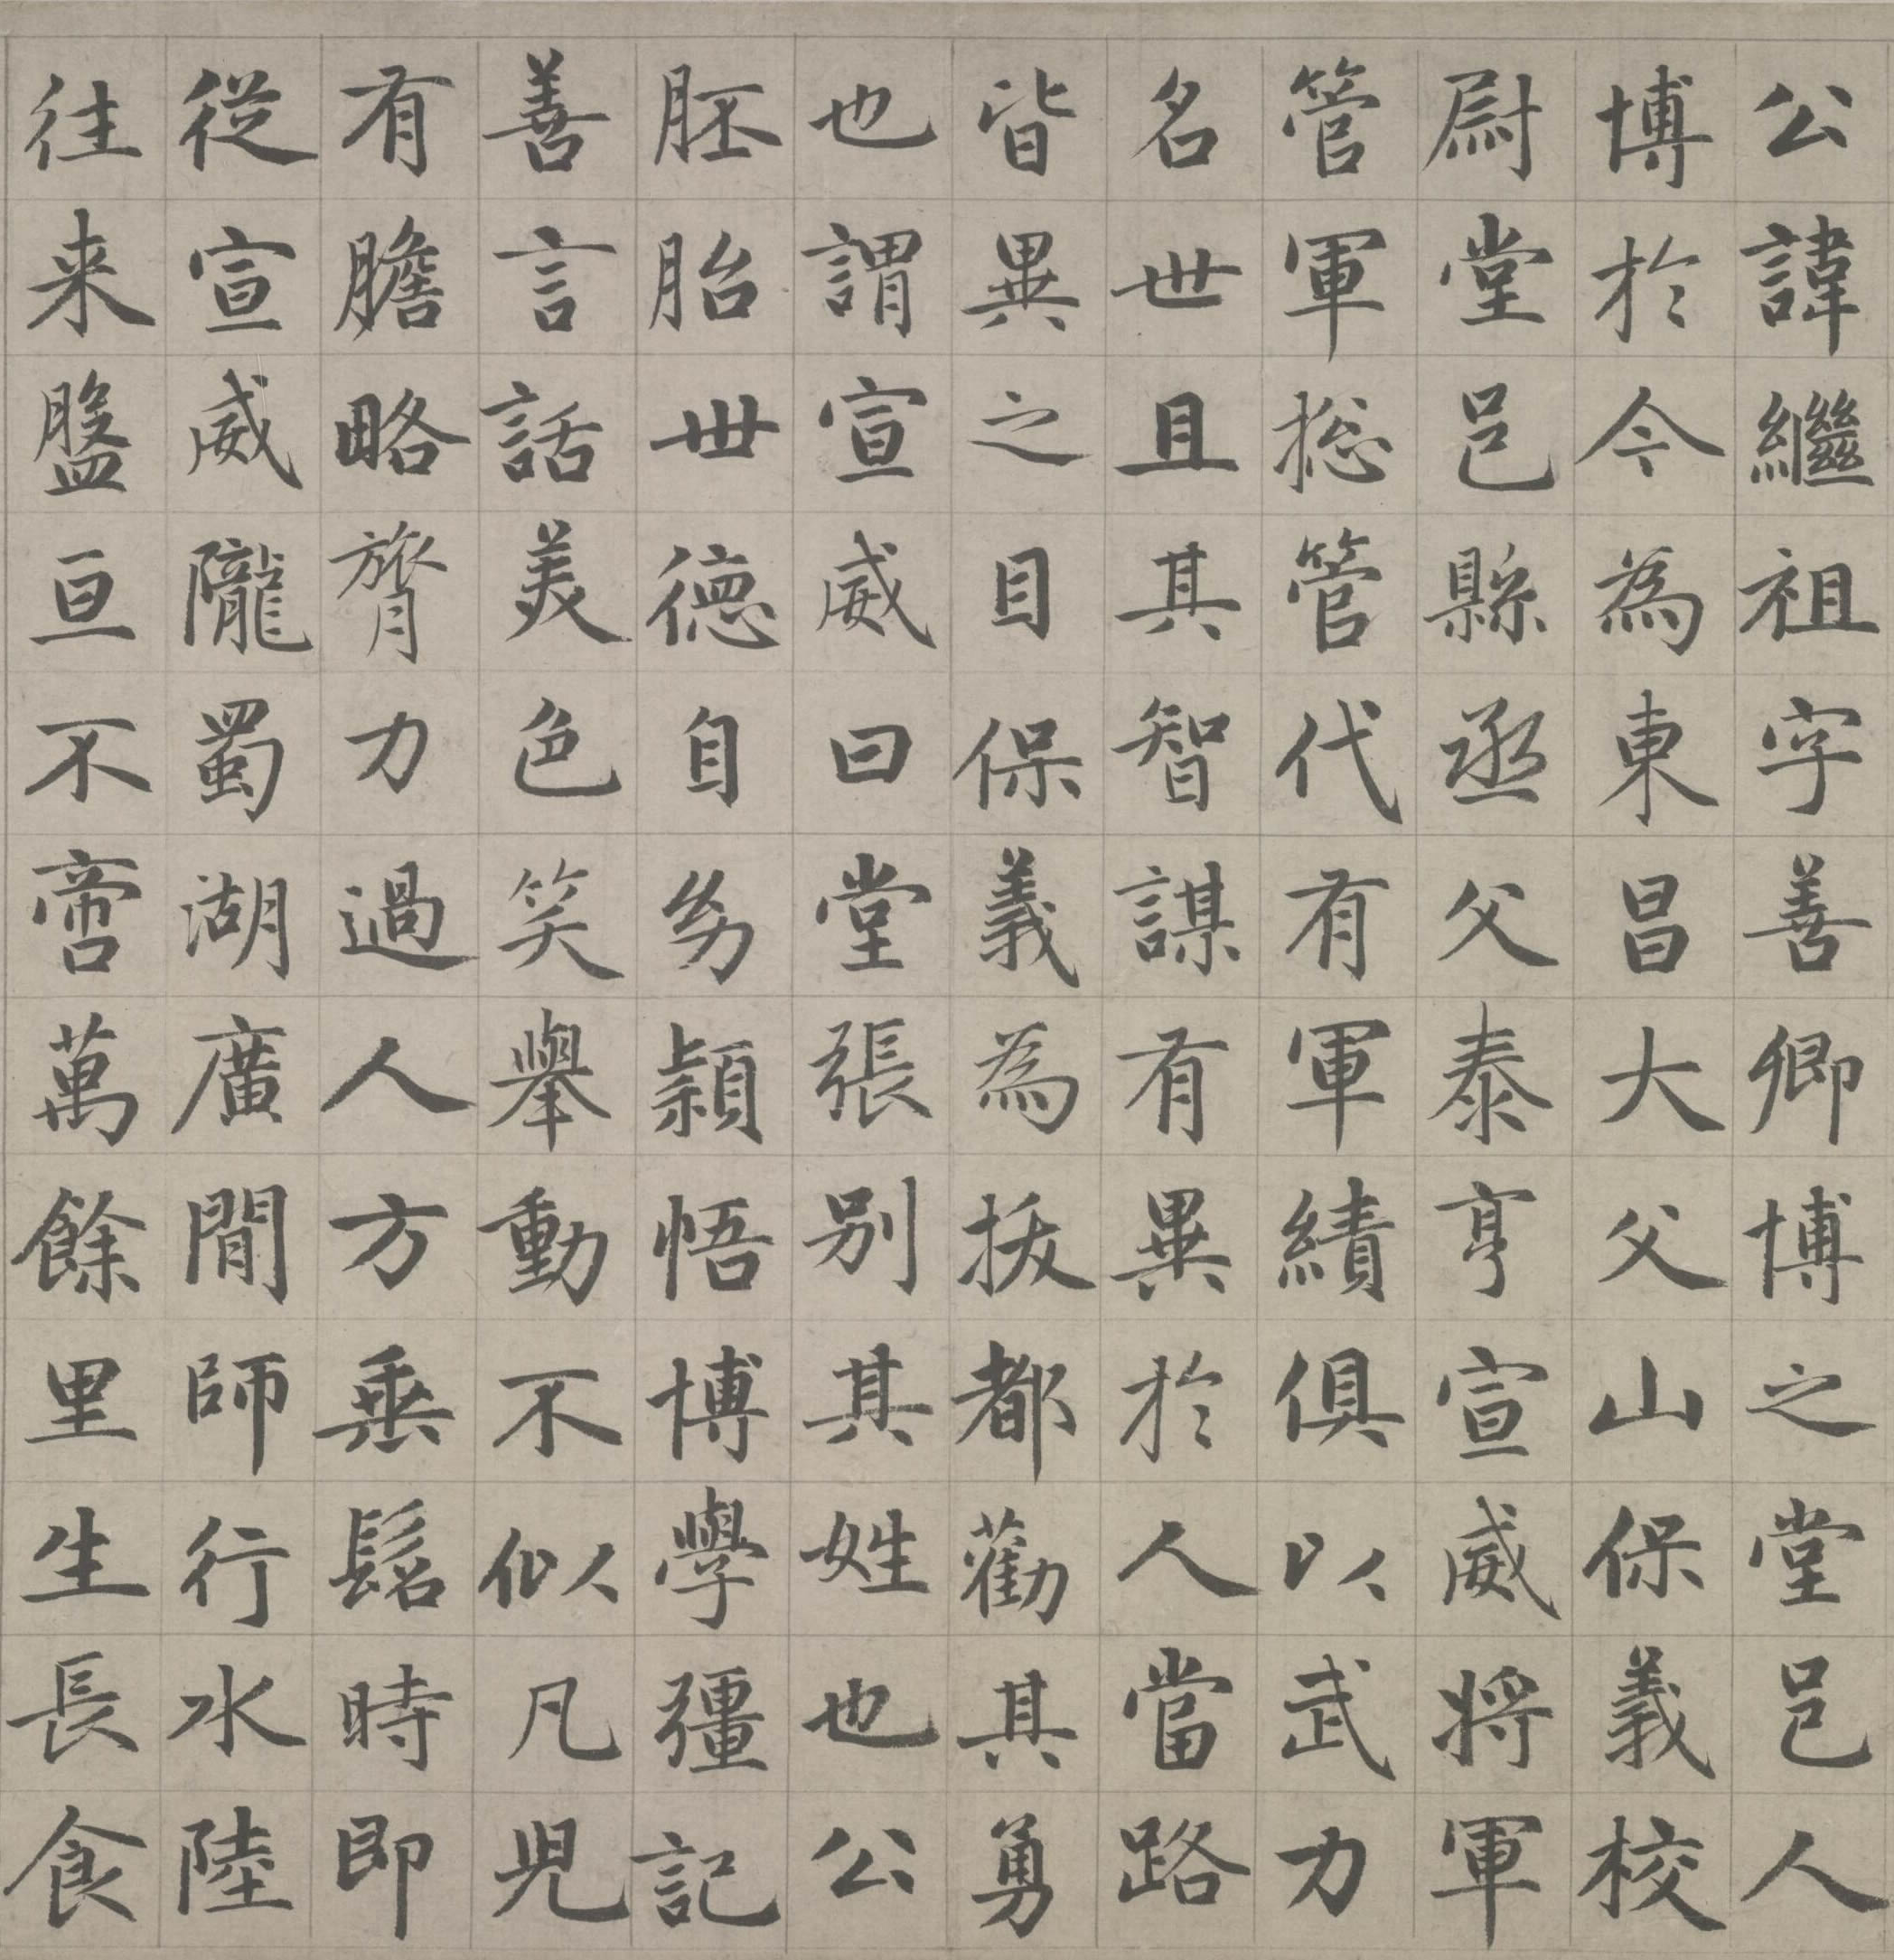 公諱繼祖字善卿博之堂邑人
博於今為東昌大父山保義校
尉堂邑縣丞父泰亨宣威將軍
管軍総管代有軍績俱以武力
名世且其智謀有異於人當路
皆異之目保義為拔都勸其勇
也謂宣威曰堂張別其姓也公
胚胎世德自幼穎悟博學彊記
善言話美色笑舉動不似凡兒
有膽略膂力過人方垂髫時即
從宣威隴蜀湖廣間師行水陸
往来盤亘不啻萬餘里生長食